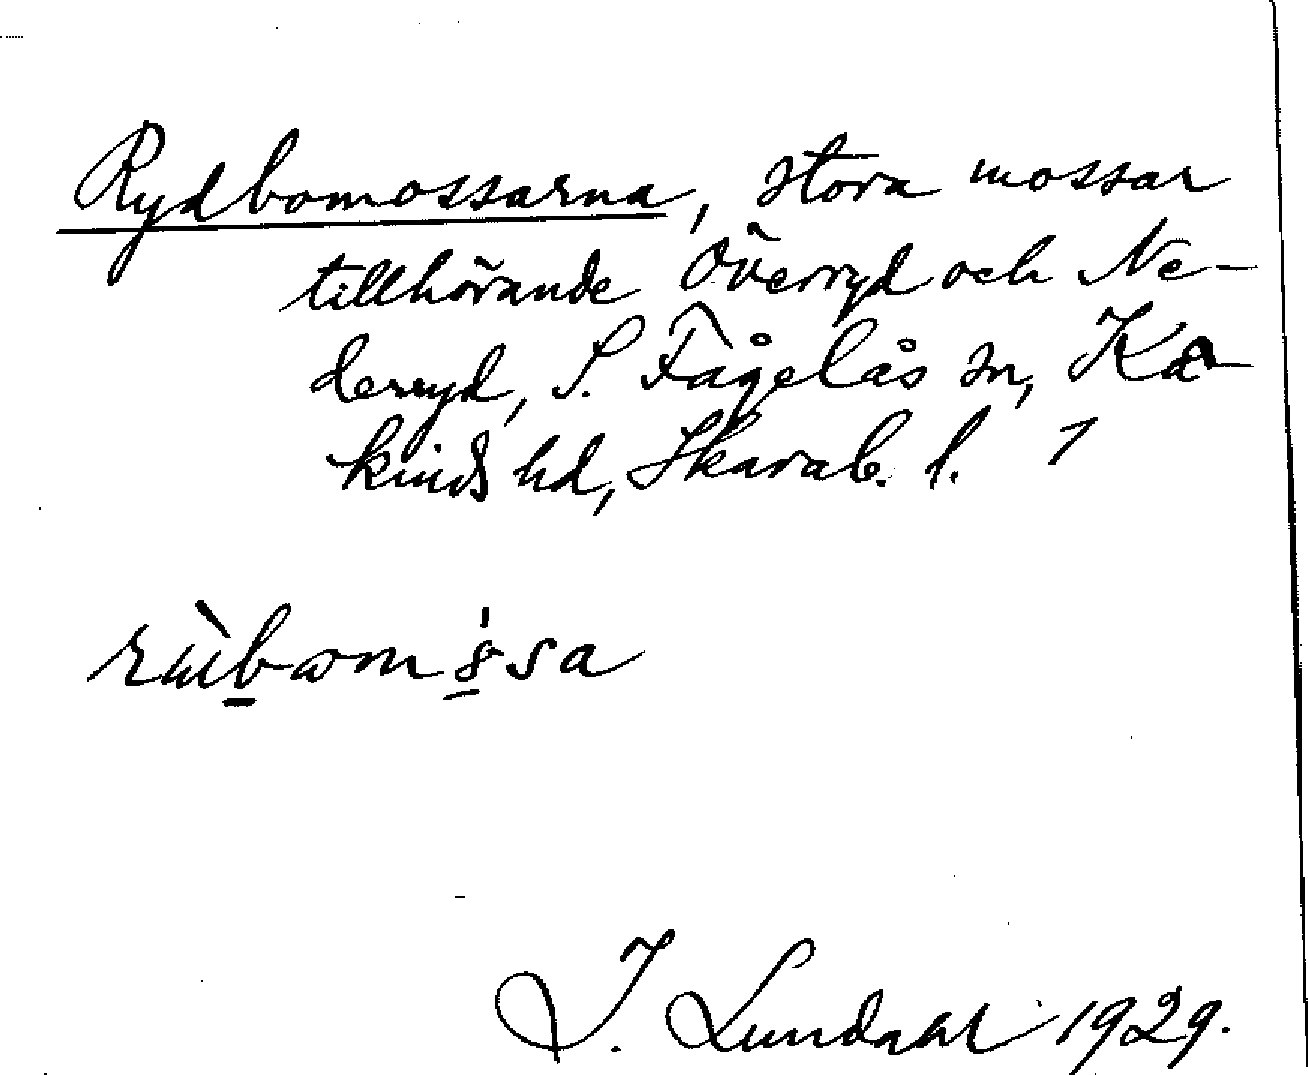 Rydbomossarna, stora mossar
tillhörande Överryd och Ne-
derryd, S. Fågelås sn, Ka-
kinds hd, Skarab. l. 1
I. Lundahl 1929.